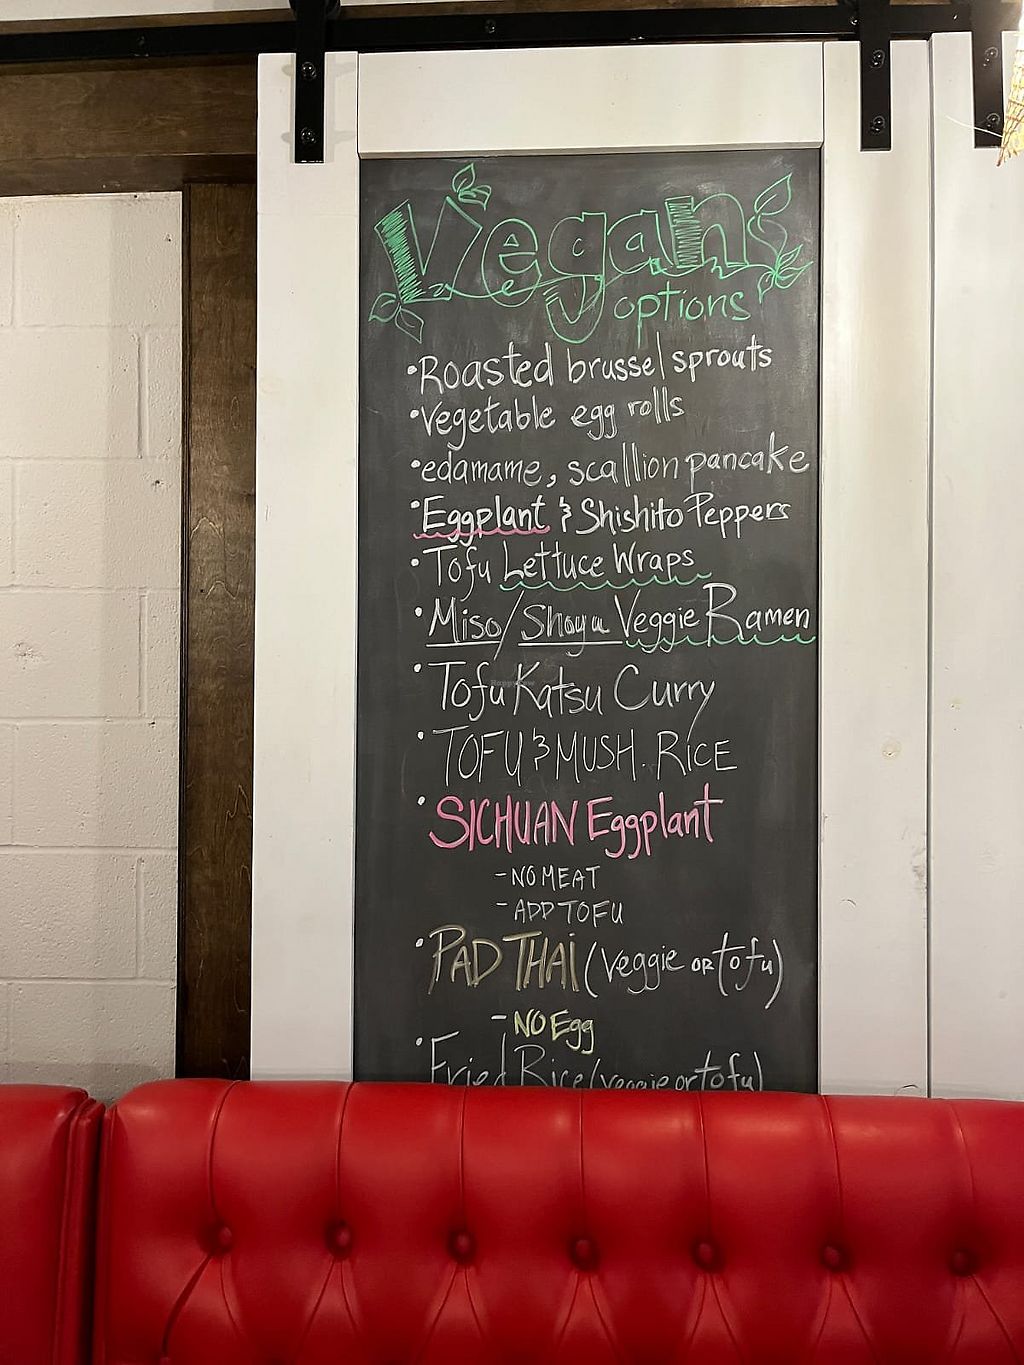 Vegan
options
•Roasted brussel sprouts
•Vegetable egg rolls
•edamame, scallion pancake
•Eggplant & Shishito Peppers
•Tofu Lettuce Wraps
•Miso/Shoyu Veggie Ramen
•Tofu Katsu Curry
•TOFU & MUSH. RICE
•SICHUAN Eggplant
-NO MEAT
-ADD TOFU
•PAD THAI (veggie OR tofu)
-NO Egg
•Fried Rice (veggie or tofu)